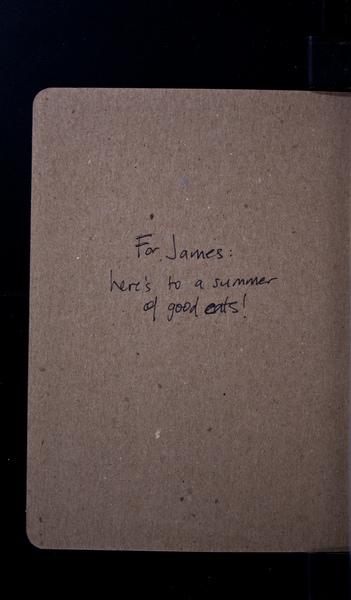 For James:
here's to a summer
of good eats!